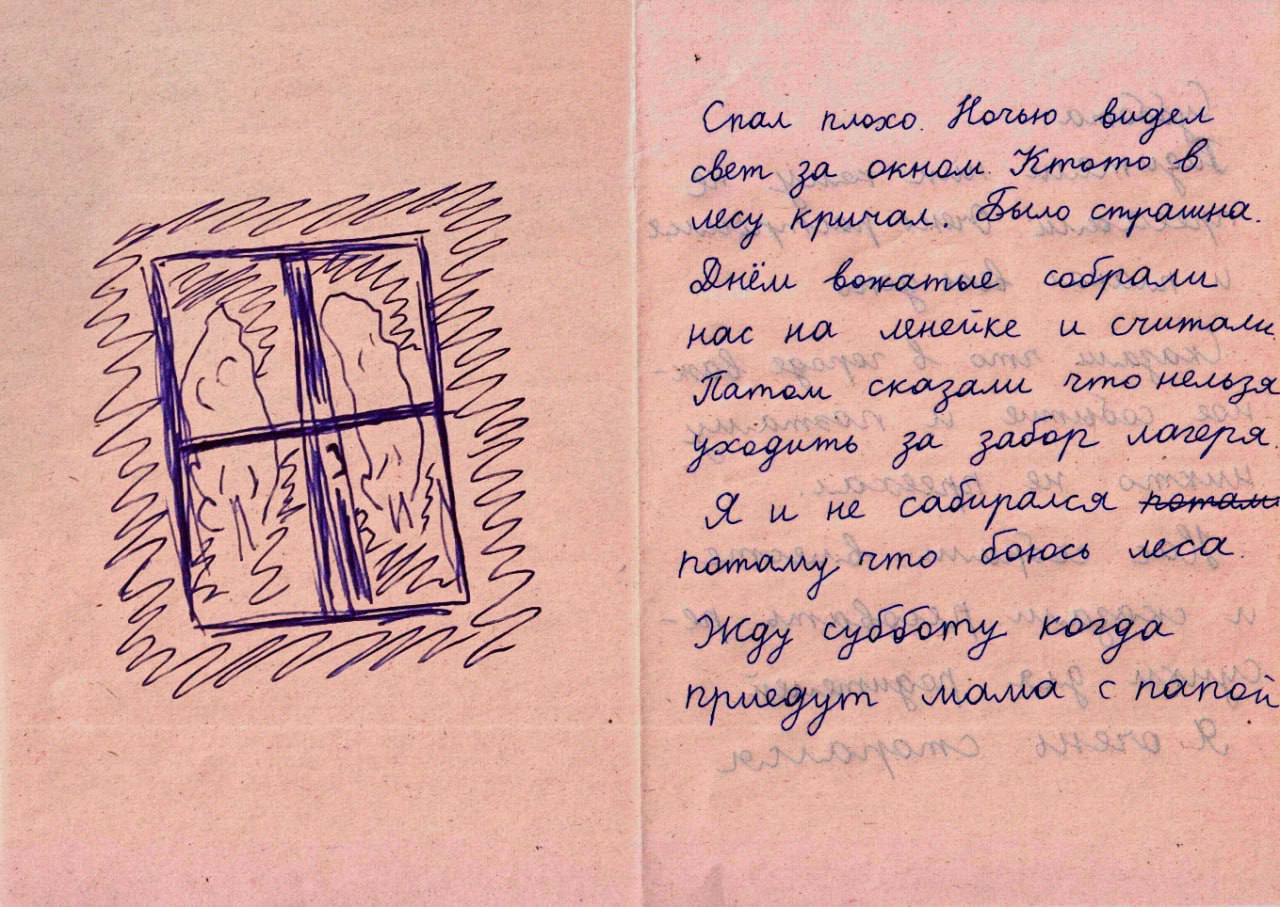 Спал плохо. Ночью видел
свет за окном. Ктото в
лесу кричал. Было страшна.
Днём вожатые собрали
нас на ленейке и считали.
Патом сказали что нельзя
уходить за забор лагеря.
Я и не сабирался потам
потаму что боюсь леса.
Жду субботу когда
приедут мама с папой